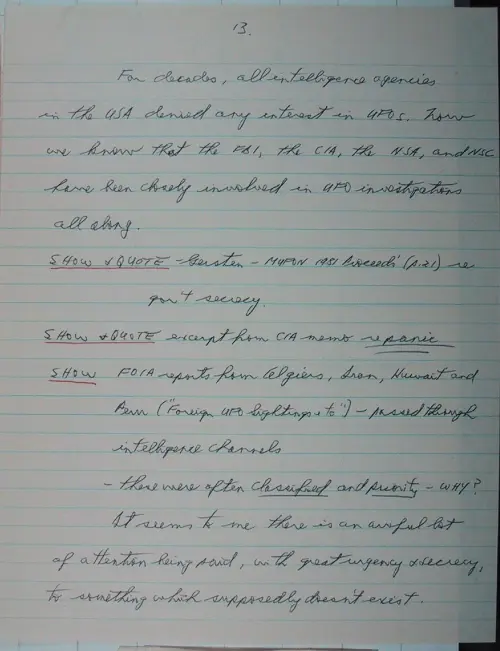 13.
For decades, all intelligence agencies
in the USA denied any interest in UFOs. Now
we know that the FBI, the CIA, the NSA, and NSC
have been closely involved in UFO investigations
all along.
SHOW & QUOTE - Gersten - MUFON 1981 Proceed's (p.21) re
gov't secrecy.
SHOW & QUOTE excerpt from CIA memo re panic
SHOW FOIA reports from Algiers, Iran, Kuwait and
("Foreign UFO Sightings") - passed through
intelligence channels
- these were often classified and priority - WHY?
It seems to me there is an awful lot
of attention being paid, with great urgency & secrecy,
to something which supposedly doesn't exist.